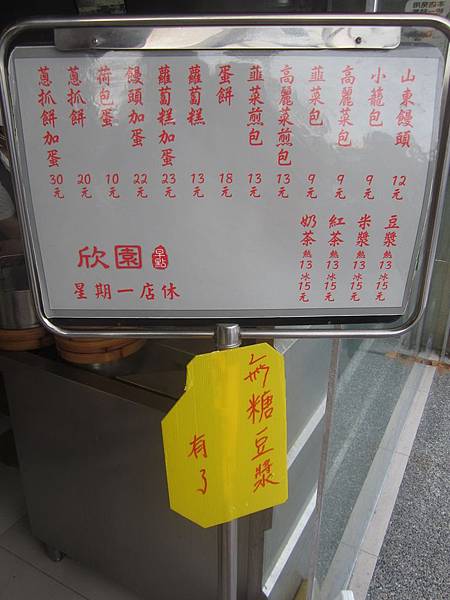 山東饅頭 12元
小籠包 9元
高麗菜包 9元
韮菜包 9元
高麗菜煎包 13元
韮菜煎包 13元
蛋餅 18元
蘿蔔糕 13元
蘿蔔糕加蛋 23元
饅頭加蛋 22元
荷包蛋 10元
蔥抓餅 20元
蔥抓餅加蛋 30元
豆漿 熱13冰15元
米漿 熱13冰15元
紅茶 熱13冰15元
奶茶 熱13冰15元
欣園早點
星期一店休
無糖豆漿
有了